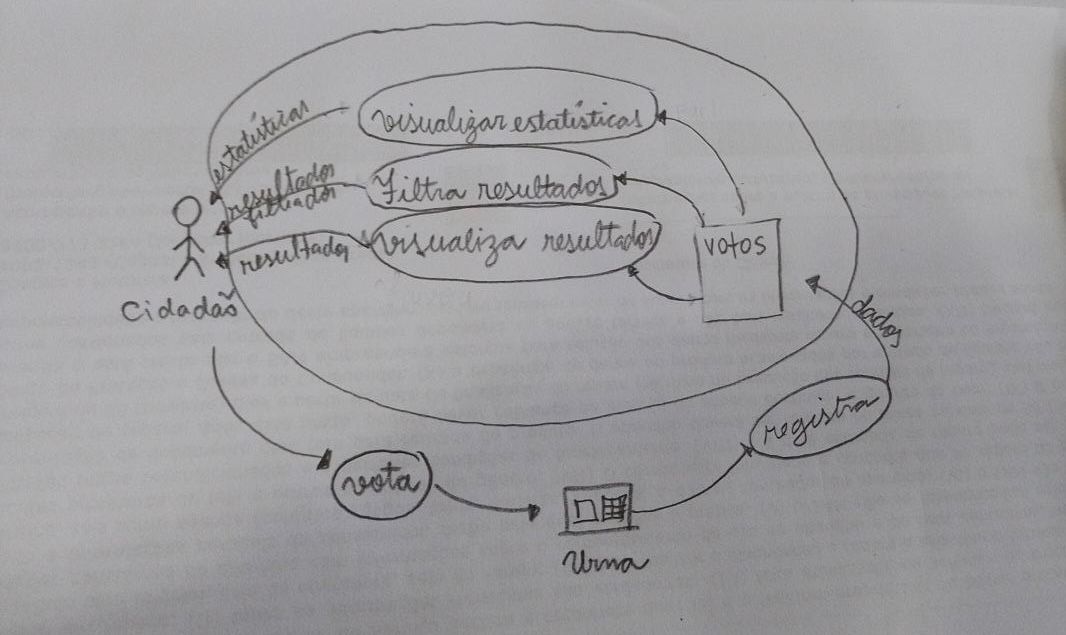 estatísticas
visualizar estatísticas
resultados
filtrados
Filtra resultados
resultados
visualiza resultados
votos
Cidadão
dados
registra
vota
Urna